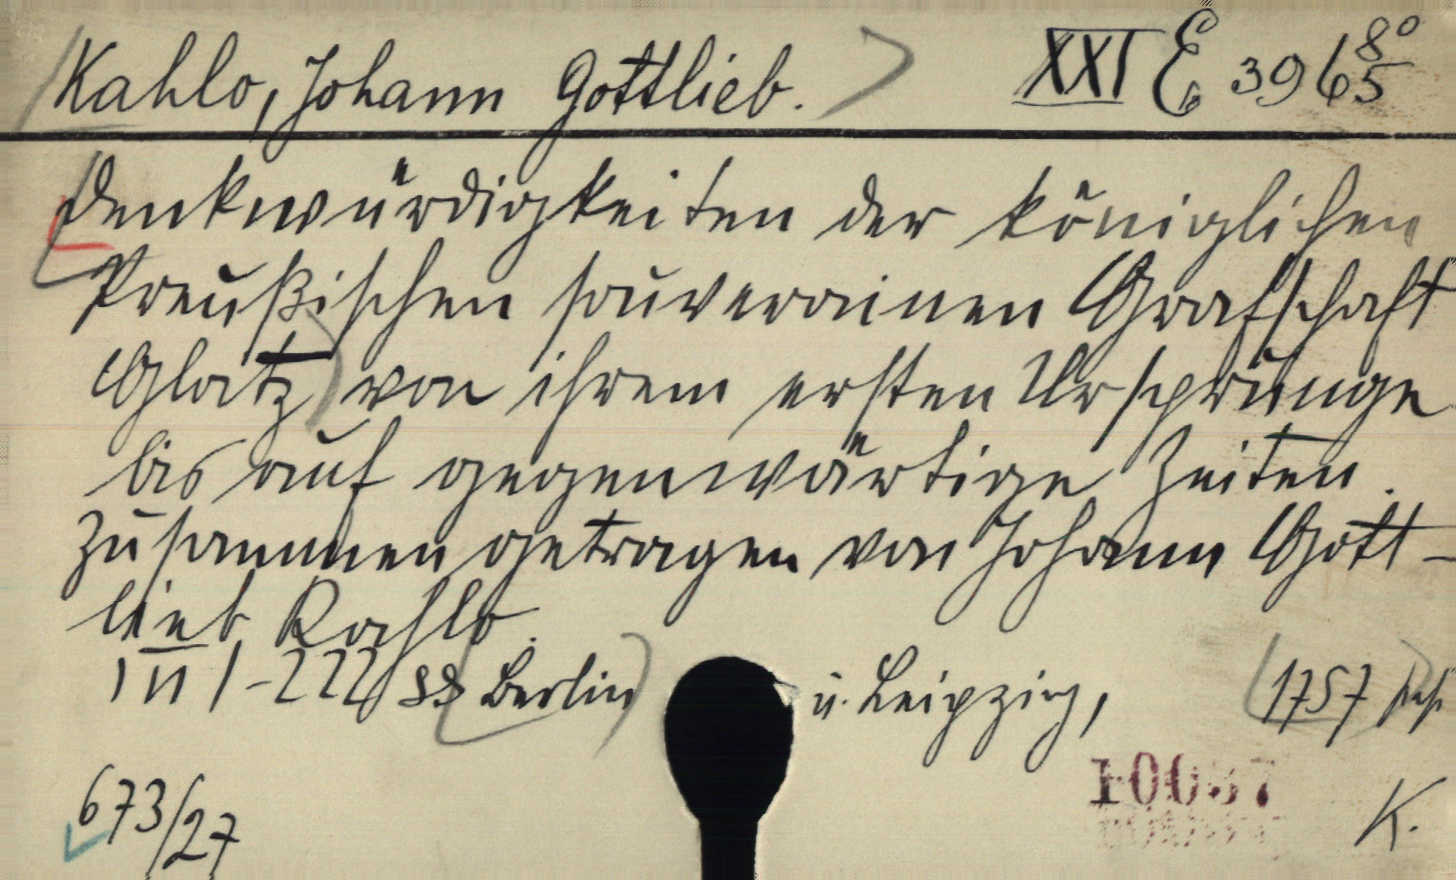 Kahlo, Johann Gottlieb.
XXI E 3965 8°
Denkwürdigkeiten der königlichen
Preußischen souverainen Grafschaft
Glatz von ihrem ersten Ursprunge
bis auf gegenwärtige Zeiten.
Zusammen getragen von Johann Gott-
lieb Kahlo.
222 SS Berlin u. Leipzig, 1757
673/27
K.